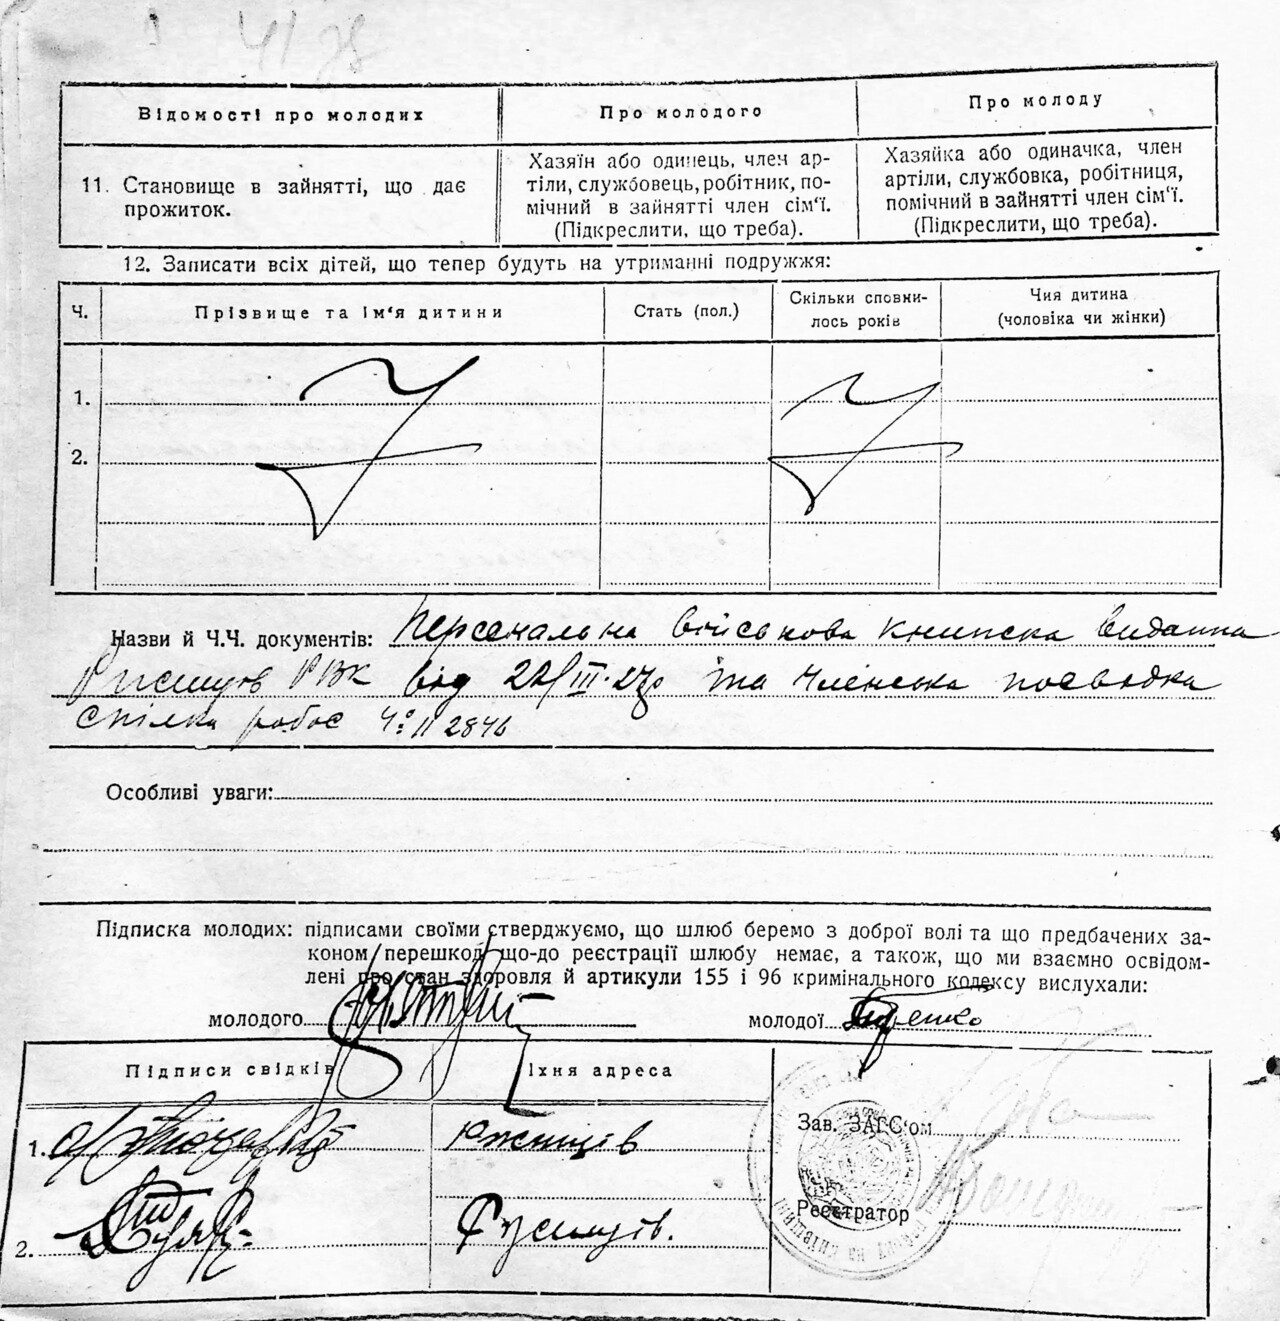 4/78
Відомості про молодих
Про молодого
Про молоду
11. Становище в зайнятті, що дає
прожиток.
Хазяїн або одинець, член ар-
тіли, службовець, робітник, по-
мічний в зайнятті член сім'ї.
(Підкреслити, що треба).
Хазяйка або одиначка, член
артіли, службовка, робітниця,
помічний в зайнятті член сім'ї.
(Підкреслити, що треба).
12. Записати всіх дітей, що тепер будуть на утриманні подружжя:
Ч.
Прізвище та ім'я дитини
Стать (пол.)
Скільки сповни-
лось років
Чия дитина
(чоловіка чи жінки)
1.
2.
Назви й Ч.Ч. документів: Персональна військова книжка видана
РВК від 22/III-27р та членська посвідка
спілка робос Ч: 2846
Особливі уваги:
Підписка молодих: підписами своїми стверджуємо, що шлюб беремо з доброї волі та що предбачених за-
коном перешкод що-до реєстрації шлюбу немає, а також, що ми взаємно освідом-
лені про стан здоровля й артикули 155 і 96 кримінального кодексу вислухали:
молодого
молодої
Підписи свідків
Їхня адреса
1.
2.
Зав. ЗАГС'ом
Реєстратор